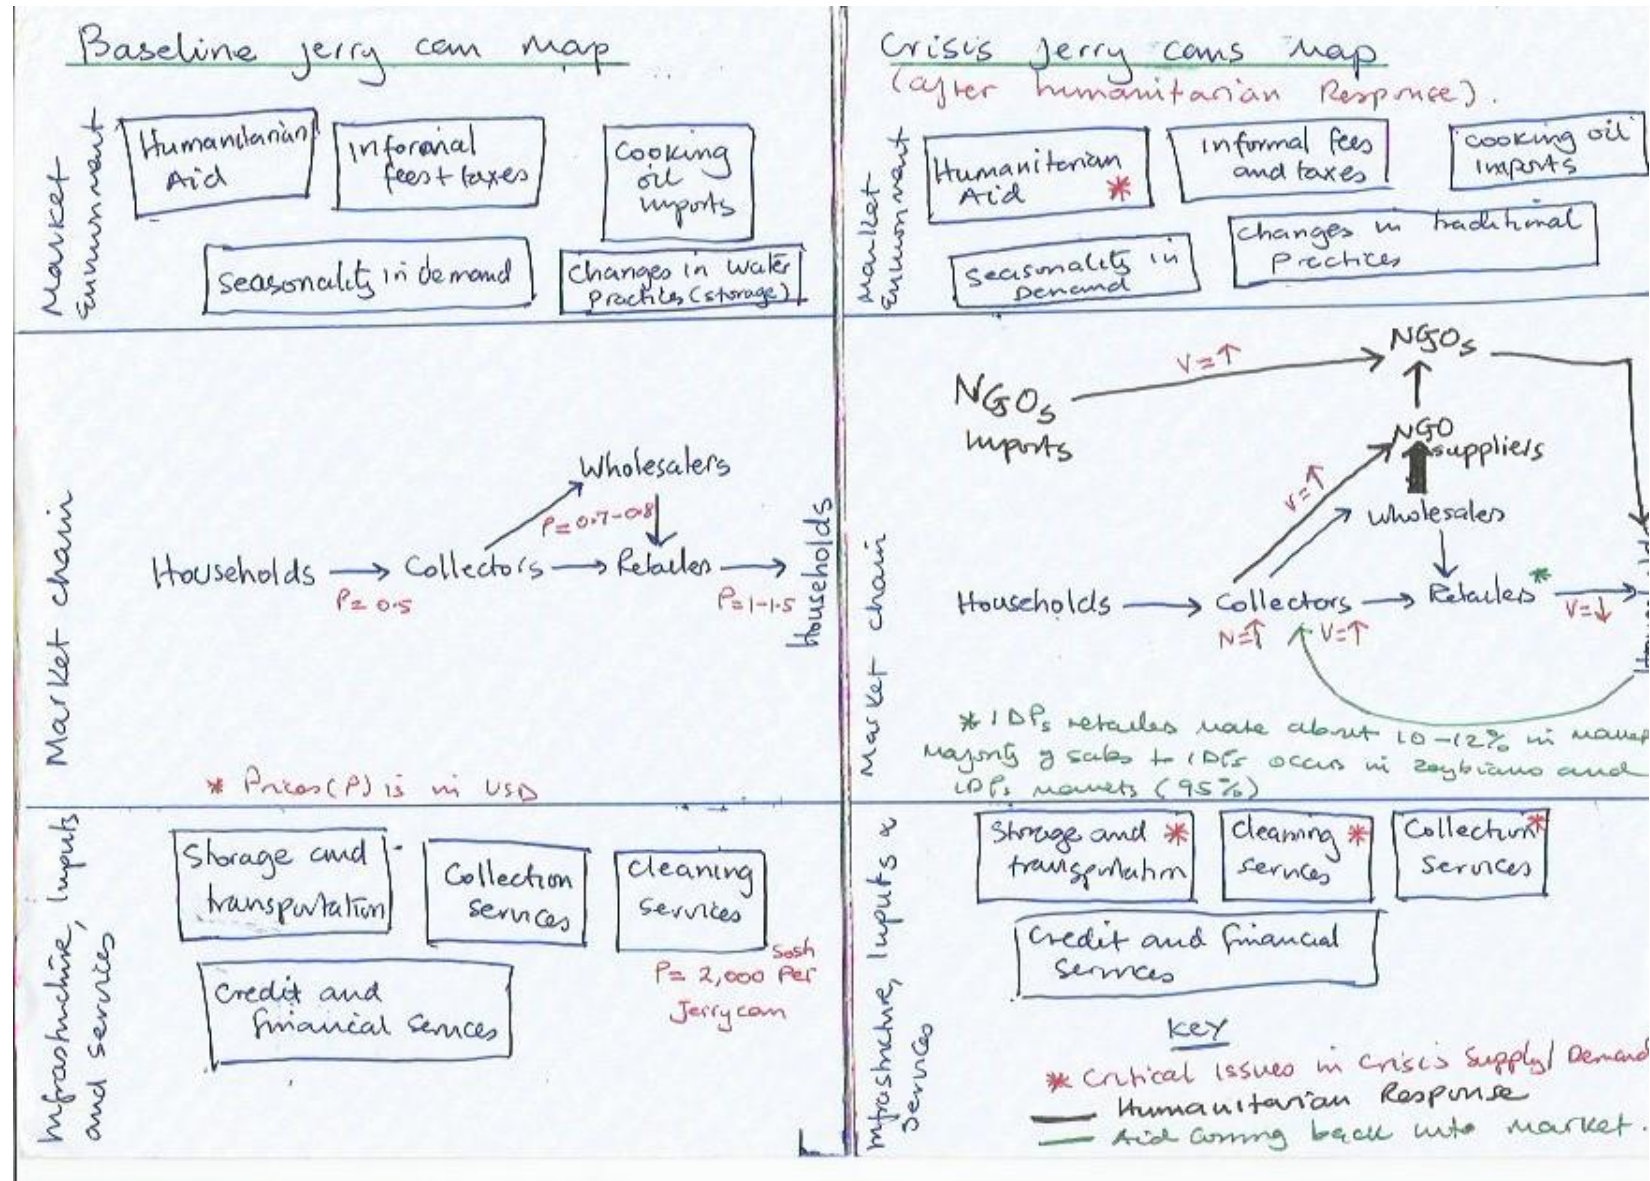 Baseline jerry can map
Market
Environment
Humanitarian
Aid
Informal
fees + taxes
Cooking
oil
imports
Seasonality in demand
Changes in water
Practices (storage)
Market chain
Households
P= 0.5
Collectors
Wholesalers
P= 0.7-0.8
Retailers
P=1-1.5
Households
* Prices (P) is in USD
Infrastructure, Inputs
and services
Storage and
transportation
Collection
services
Cleaning
services
Sosh
P= 2,000 Per
Jerrycan
Credit and
financial services
Crisis Jerry cans Map
(after humanitarian Response).
Market
Environment
Humanitarian
Aid *
Informal fees
and taxes
Cooking oil
imports
Seasonality in
Demand
Changes in traditional
Practices
Market chain
NGOs
imports
V=↑
NGOs
NGO
suppliers
V=↑
Wholesales
Households
Collectors
N=↑
V=↑
Retailers *
V=↓
* IDPs retailers make about 10-12% in
Majority of sales to IDPs occurs in and
IDPs markets (95%)
Infrastructure, Inputs &
Services
Storage and *
transportation
Cleaning *
services
Collection *
services
Credit and financial
services
KEY
* Critical Issues in Crisis Supply/Demand
Humanitarian Response
Aid coming back into market.